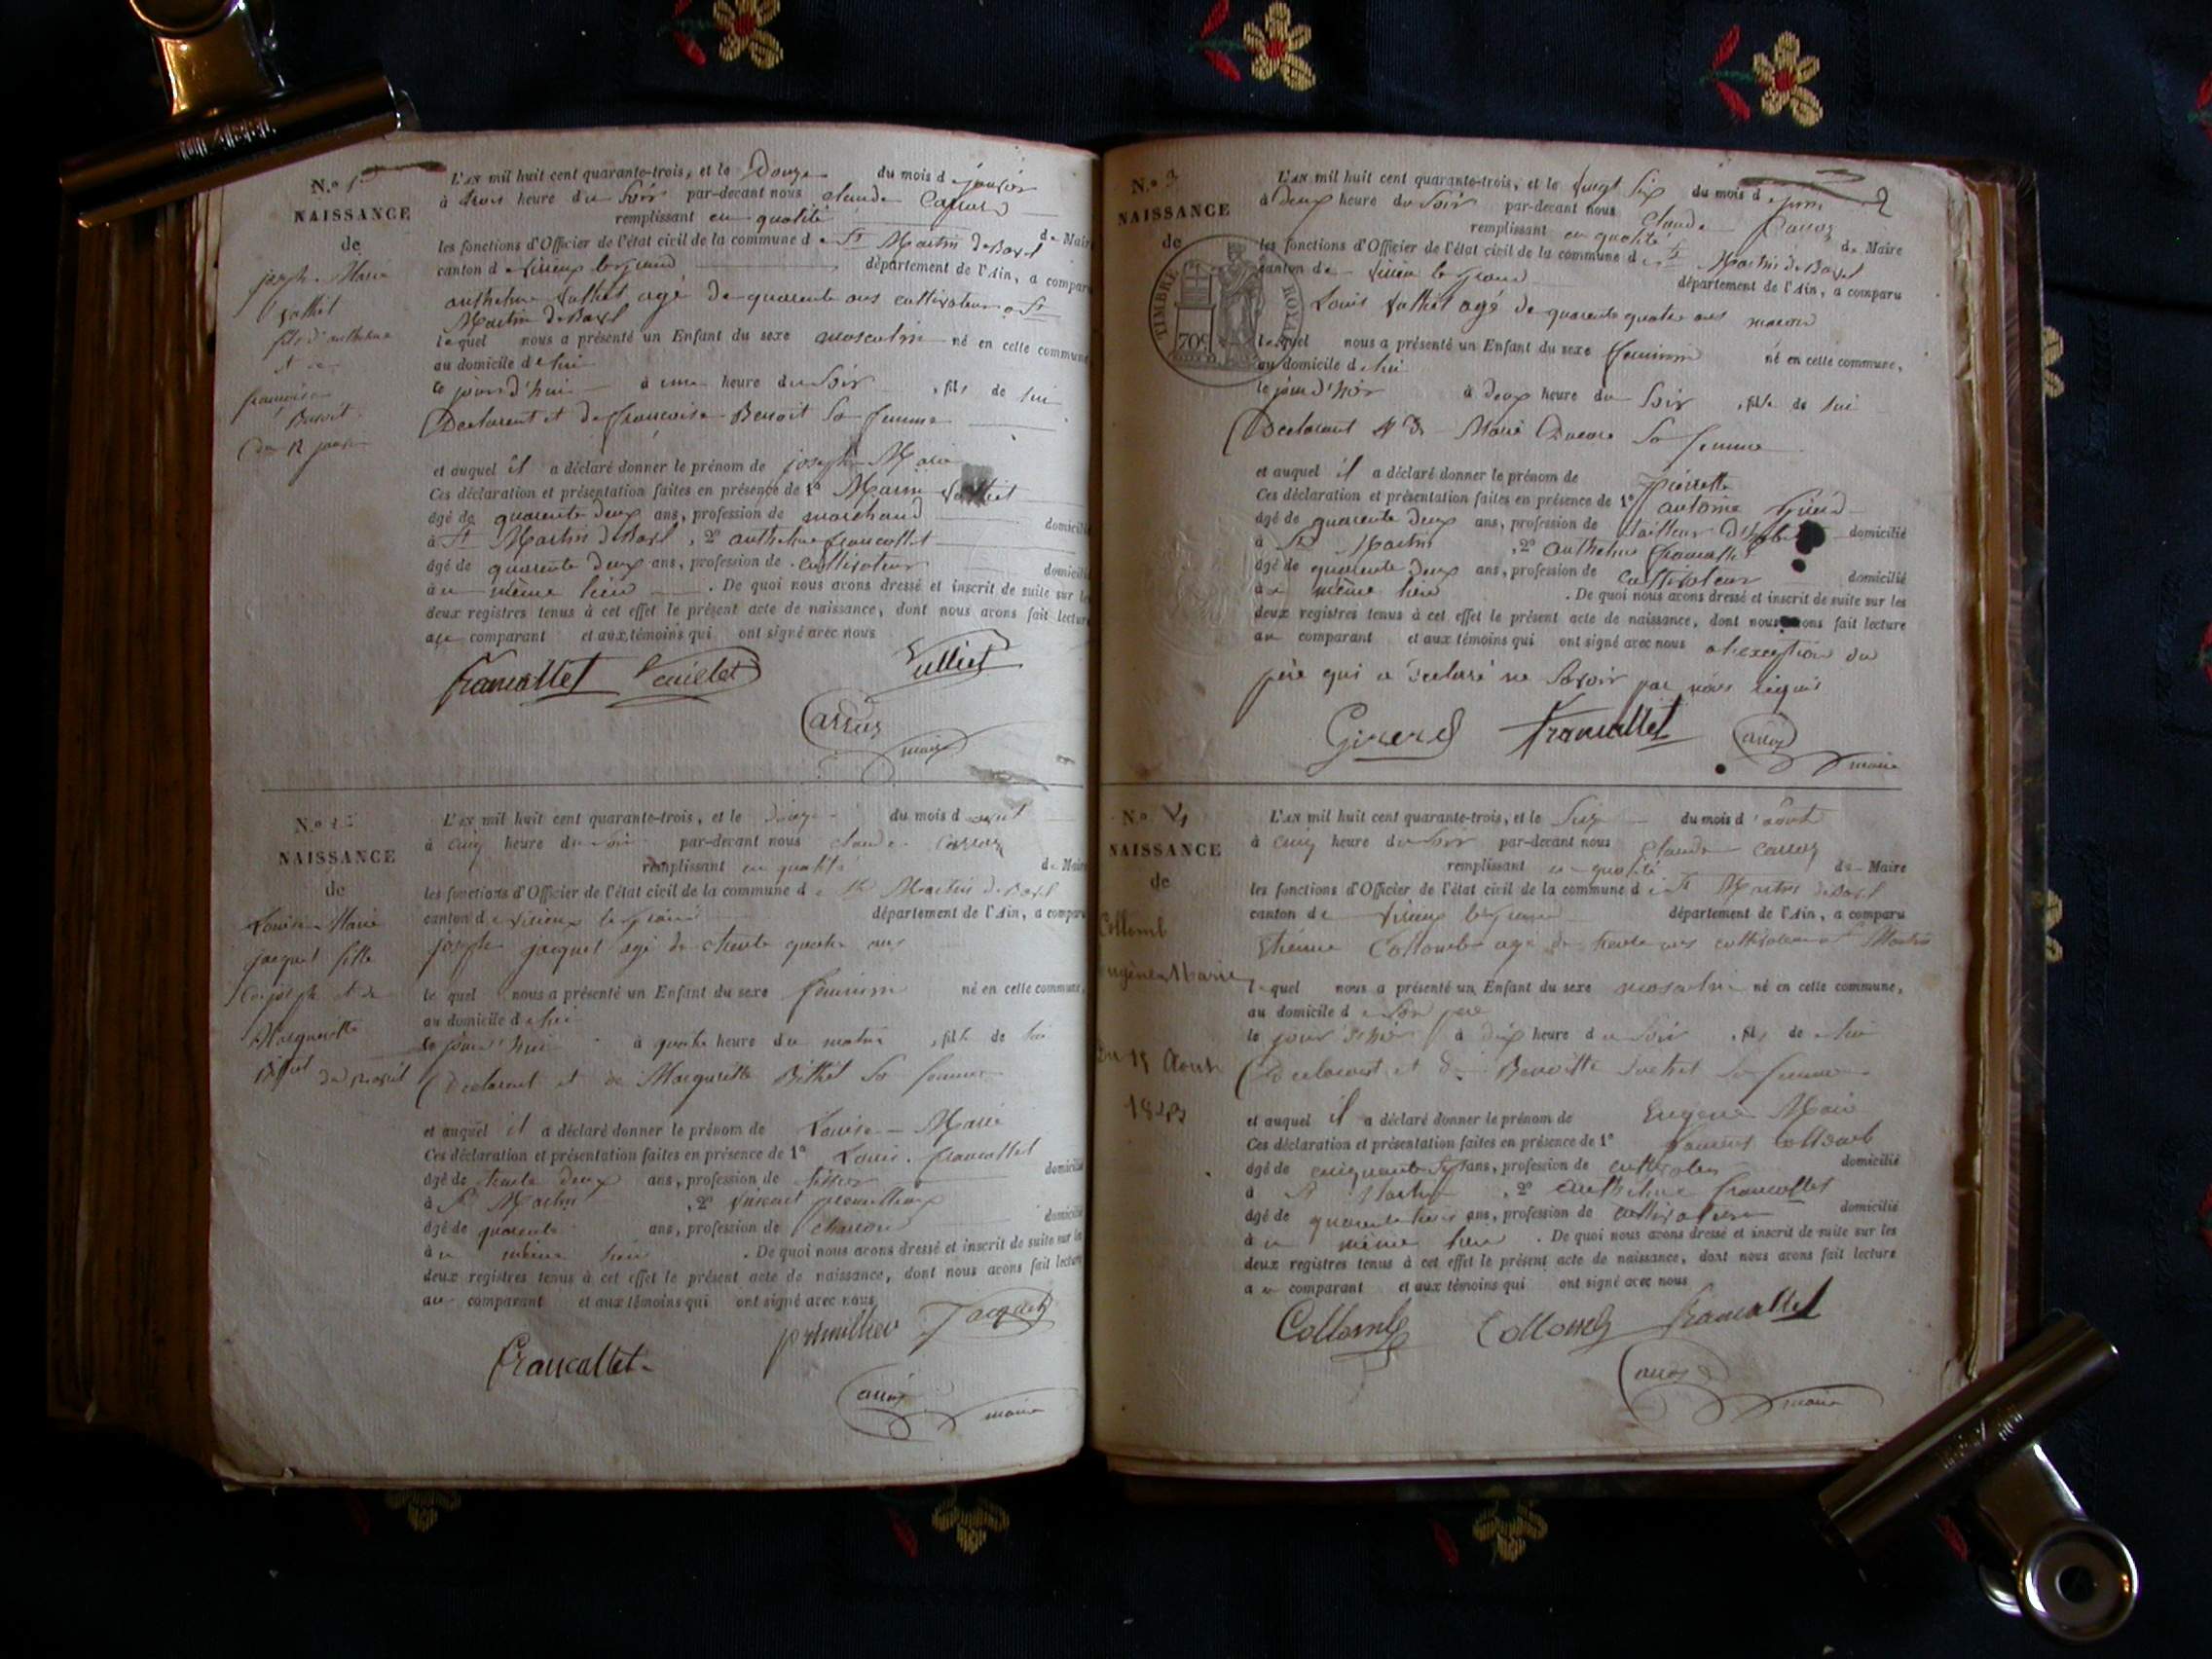 N.o 1
NAISSANCE
de
joseph Marie
fils d'anthelme
et de
françoise
Benoit
L'AN mil huit cent quarante-trois, et le Douze du mois de janvier
à trois heure du Soir par-devant nous claude Carros
remplissant en qualité de Maire
les fonctions d'Officier de l'état civil de la commune de St Martin de Bavel
canton de virieux le grand département de l'Ain, a comparu
anthelme Vulliet agé de quarente ans cultivateur a St
Martin de Bavel
lequel nous a présenté un Enfant du sexe masculin né en cette commune
au domicile de lui
le jourd'hui à une heure du Soir, fils de lui
Declarent et de françoise Benoit Sa femme
et auquel il a déclaré donner le prénom de joseph Marie
Ces déclaration et présentation faites en présence de 1°
âgé de quarente deux ans, profession de marchand domicilié
à St Martin de Bavel, 2° anthelme francallet
âgé de quarente deux ans, profession de cultivateur domicilié
à u même lieu. De quoi nous avons dressé et inscrit de suite sur les
deux registres tenus à cet effet le présent acte de naissance, dont nous avons fait lecture
au comparant et aux témoins qui ont signé avec nous
francallet Vulliet
Carros
maire
N.o
NAISSANCE
de
Louise Marie
jacquet fille
de joseph et de
Marguerite
L'AN mil huit cent quarante-trois, et le du mois d avril
à cinq heure du Soir par-devant nous claude Carros
remplissant en qualité de Maire
les fonctions d'Officier de l'état civil de la commune de St Martin de Bavel
canton de virieux le grand département de l'Ain, a comparu
joseph jacquet agé de trente quatre ans
le quel nous a présenté un Enfant du sexe féminin né en cette commune,
au domicile de lui
le jourd'hui à quatre heure du matin, fille de lui
Declarent et de Marguerite Sa femme
et auquel il a déclaré donner le prénom de Louise Marie
Ces déclaration et présentation faites en présence de 1° Louis francallet
âgé de trente deux ans, profession de domicilié
à St Martin, 2° vincent
âgé de quarente ans, profession de charron domicilié
à u même lieu. De quoi nous avons dressé et inscrit de suite sur les
deux registres tenus à cet effet le présent acte de naissance, dont nous avons fait lecture
au comparant et aux témoins qui ont signé avec nous
francallet Jacquet
Carros
maire
N.o 3
NAISSANCE
de
TIMBRE ROYAL
70c
L'AN mil huit cent quarante-trois, et le vingt Six du mois de juin
à Deux heure du Soir par-devant nous Claude Carros
remplissant en qualité de Maire
les fonctions d'Officier de l'état civil de la commune de St Martin de Bavel
canton de virieu le grand département de l'Ain, a comparu
Louis agé de quarente quatre ans macon
lequel nous a présenté un Enfant du sexe feminin né en cette commune,
au domicile de lui
le jourd'hui à deux heure du Soir, fille de lui
Declarant et de Marie Sa femme
et auquel il a déclaré donner le prénom de pierrette
Ces déclaration et présentation faites en présence de 1° antoine Girerd
âgé de quarente deux ans, profession de tailleur domicilié
à St Martin, 2° anthelme francallet
âgé de quarente deux ans, profession de cultivateur domicilié
à u même lieu. De quoi nous avons dressé et inscrit de suite sur les
deux registres tenus à cet effet le présent acte de naissance, dont nous avons fait lecture
au comparant et aux témoins qui ont signé avec nous a l'exception du
père qui a déclaré ne Savoir par nous requis
Girerd francallet Carros
maire
N.o 4
NAISSANCE
de
Collomb
Eugène Marie
Août
1843
L'AN mil huit cent quarante-trois, et le du mois d'août
à cinq heure du Soir par-devant nous Claude Carros
remplissant en qualité de Maire
les fonctions d'Officier de l'état civil de la commune de St Martin de Bavel
canton de virieux le grand département de l'Ain, a comparu
Etienne Collomb agé de trente ans cultivateur a St Martin
lequel nous a présenté un Enfant du sexe masculin né en cette commune,
au domicile de Son père
le jour d'hier à dix heure du Soir, fils de lui
Declarent et de Benoitte Sa femme
et auquel il a déclaré donner le prénom de Eugene Marie
Ces déclaration et présentation faites en présence de 1° Collomb
âgé de ans, profession de cultivateur domicilié
à St Martin, 2° anthelme francallet
âgé de quarente trois ans, profession de cultivateur domicilié
à u même lieu. De quoi nous avons dressé et inscrit de suite sur les
deux registres tenus à cet effet le présent acte de naissance, dont nous avons fait lecture
a u comparant et aux témoins qui ont signé avec nous
Collomb Collomb francallet
Carros
maire